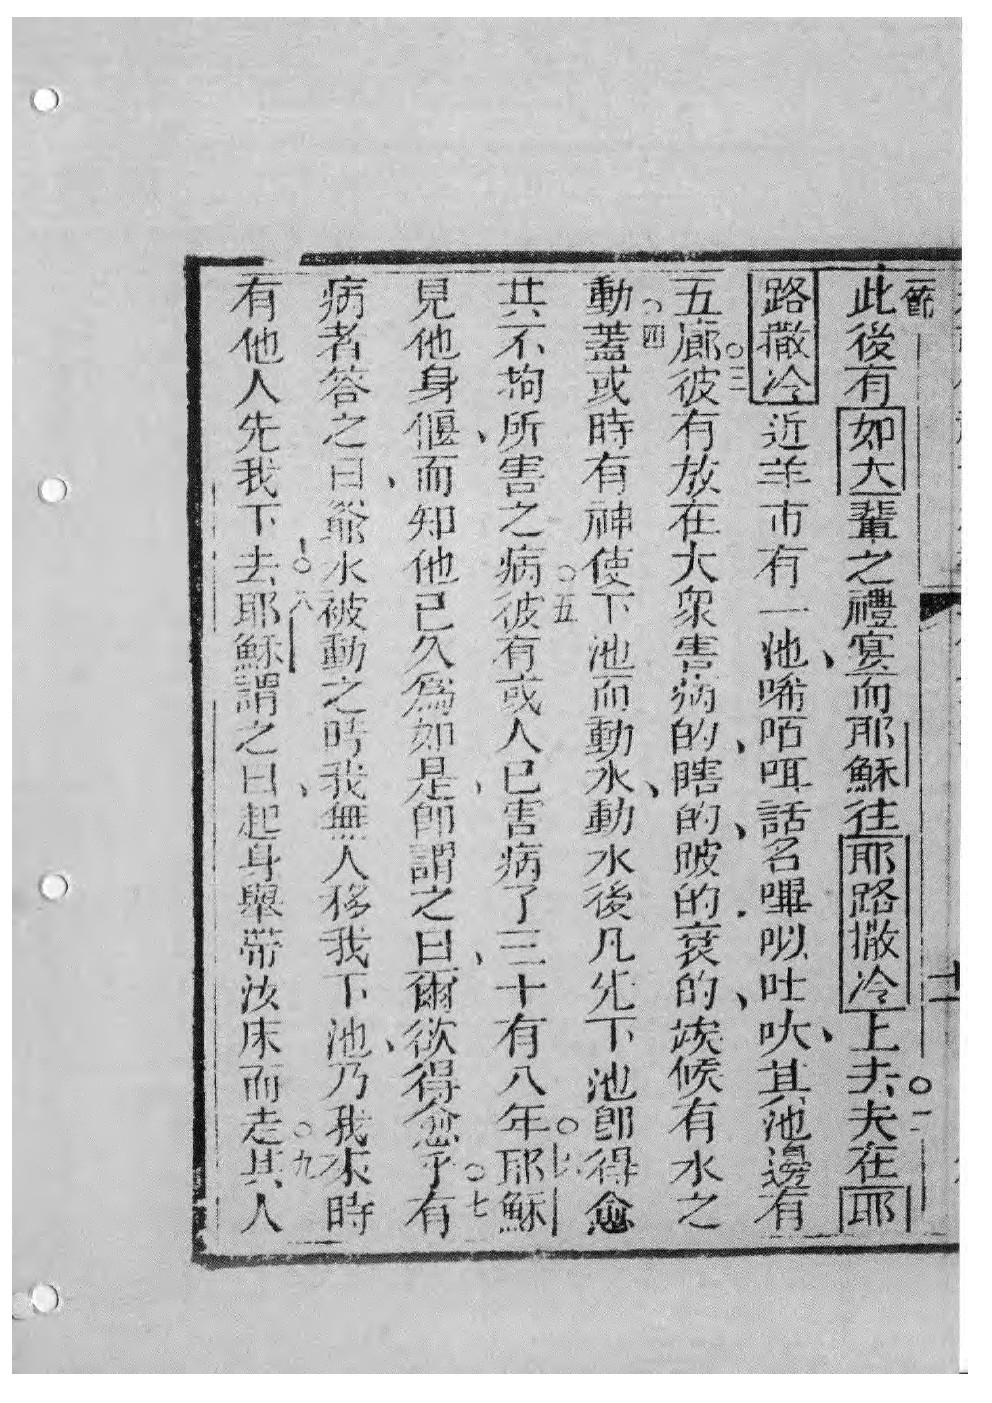 節
此後有如大輩之禮宴而耶穌往耶路撒冷上去○二夫在耶
路撒冷近羊市有一池唏咟咡話名嗶㕥吐吙其池邊有
五廊○三彼有放在大衆害病的瞎的跛的衰的俟候有水之
動○四蓋或時有神使下池而動水動水後凡先下池卽得愈
其不拘所害之病○五彼有或人已害病了三十有八年○六耶穌
見他身偃而知他已久爲如是卽謂之曰爾欲得愈乎○七有
病者答之曰爺水被動之時我無人移我下池乃我來時
有他人先我下去○八耶穌謂之曰起身舉帶汝床而走○九其人